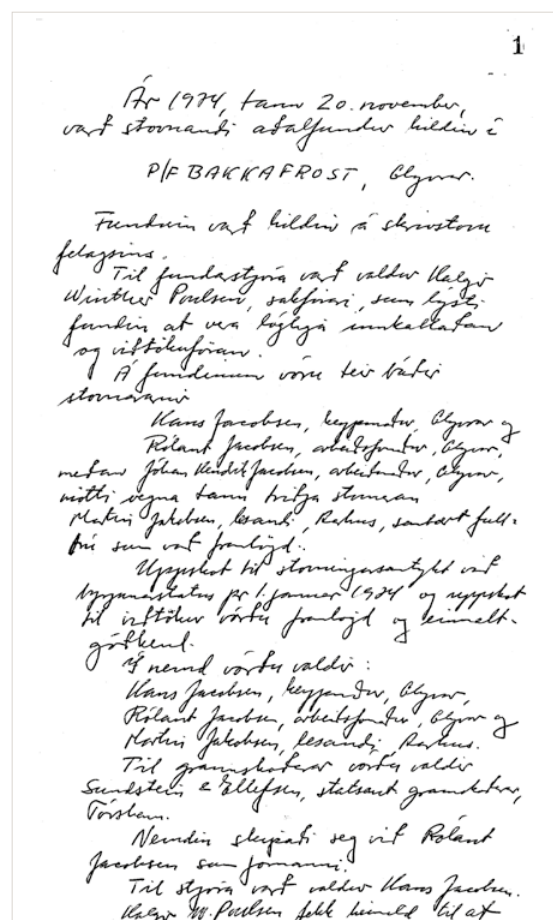 1
Ár 1974, tann 20. november,
varð stovnandi aðalfundur hildin í
P/F BAKKAFROST, Glyvrar.
Fundurin varð hildin á skrivstovu
felagsins.
Til fundarstjóra varð valdur Helgi
Winther Poulsen, sakførari, sum lýsti
fundin at vera løgliga innkallaðan
og viðtøkuføran.
Á fundinum vóru teir báðir
stovnararnir
Hans Jacobsen, keypmaður, Glyvrar og
Róland Jacobsen, arbeiðsformaður, Glyvrar,
meðan Jóhan Hendrik Jacobsen, arbeiðsmaður, Glyvrar,
møtti vegna tann triðja stovnaran
Martin Jakobsen, lesandi, Aarhus, sambært full-
trú sum varð framløgd.
Uppskot til stovningarsamtykt við
byrjanarstatus pr 1. januar 1974 og uppskot
til viðtøkur vórðu framløgd og einmælt
góðkend.
Í nevnd vórðu valdir:
Hans Jacobsen, keypmaður, Glyvrar,
Róland Jacobsen, arbeiðsformaður, Glyvrar og
Martin Jakobsen, lesandi, Aarhus.
Til grannskoðarar vórðu valdir
Sundstein & Ellefsen, statsaut. grannskoðarar,
Tórshavn.
Nevndin skipaði seg við Róland
Jacobsen sum formanni.
Til stjóra varð valdur Hans Jacobsen.
Helgi W. Poulsen fekk heimild til at